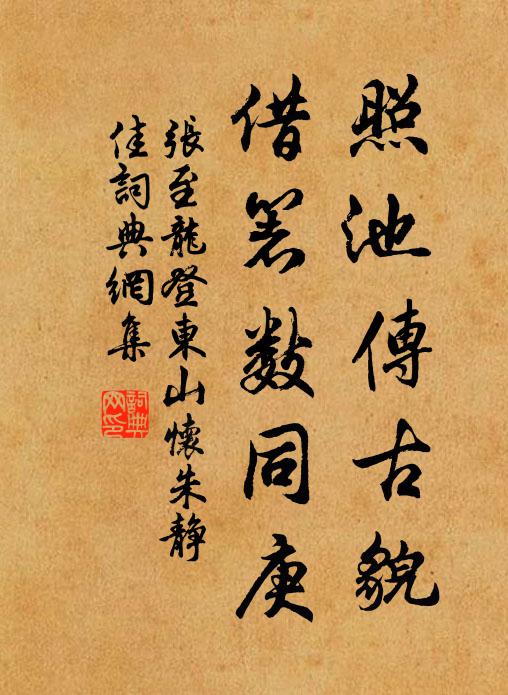 照池傳古貌
借箸數同庚
張至龍登東山懷朱静
佳詞典網集
詞典網印